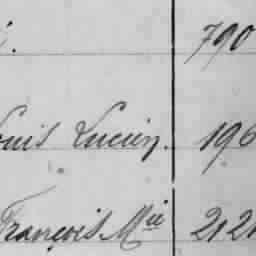 790
Louis Lucien. 196
François Mie 212